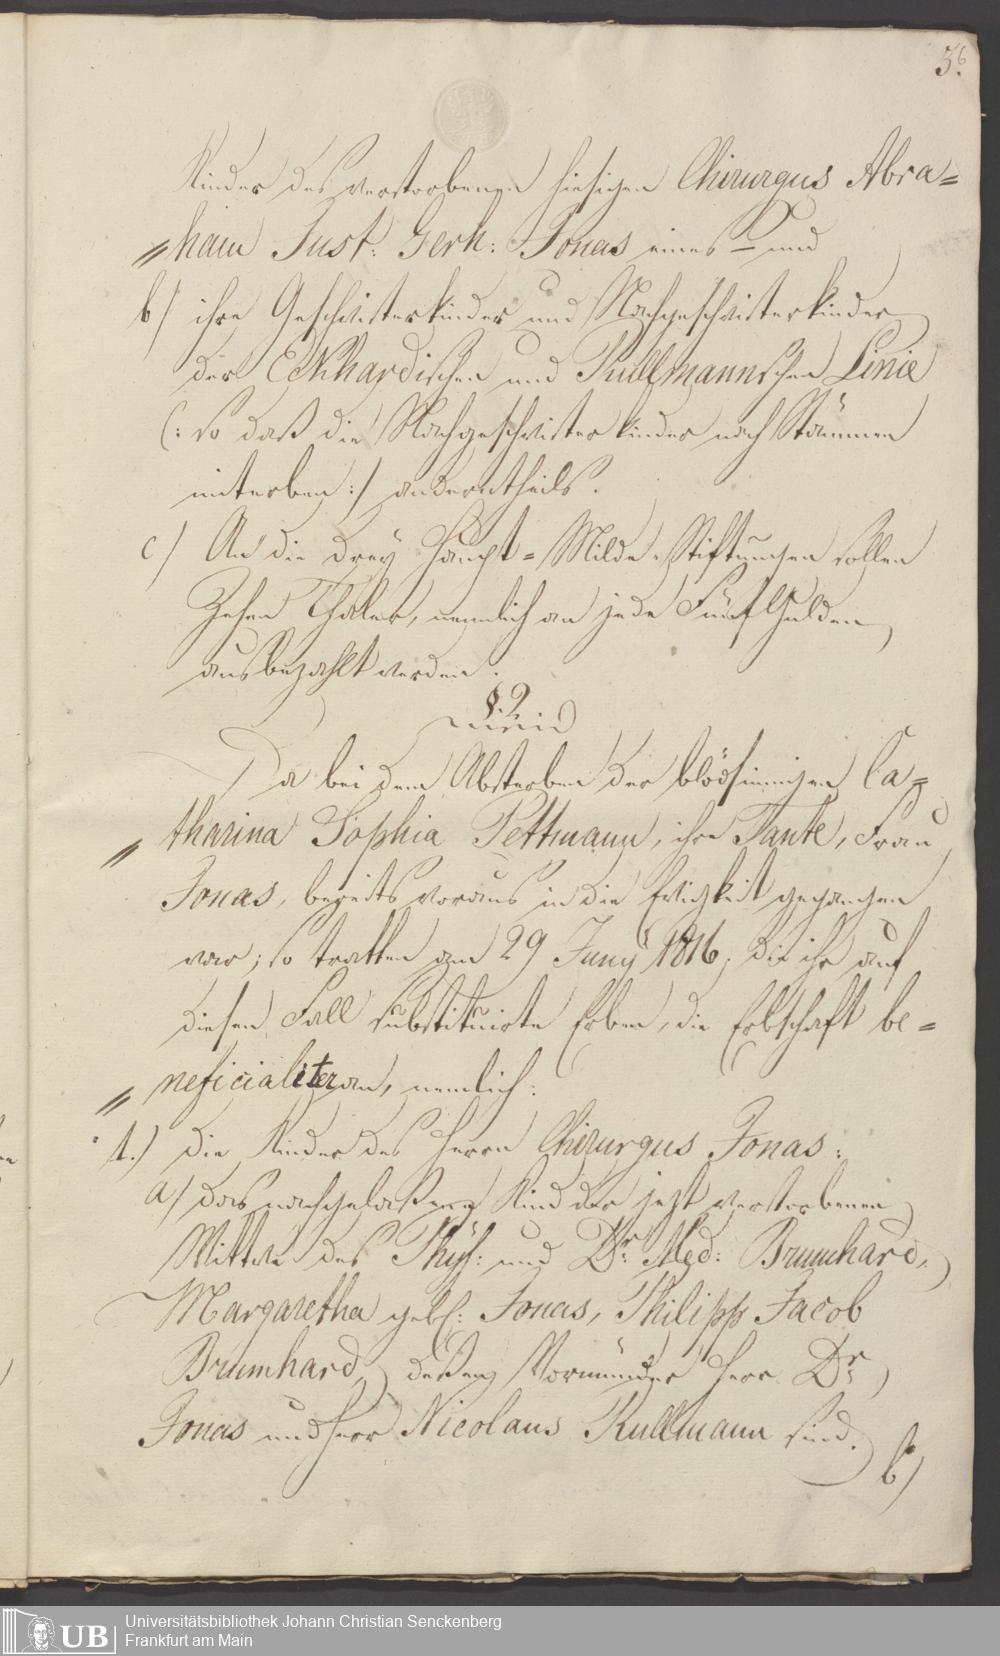 3.
Kinder des verstorbenen hiesigen Chirurgus Abra=
„ham Just: Gerh: Jonas eines – und
b) ihre Geschwisterkinder und Nachgeschwisterkinder
der Eckhardischen und Kullmannschen Linie
(: so daß die Nachgeschwisterkinder nach Stämmen
miterben :) anderntheils.
c) An die drey Haupt=Milde=Stiftungen sollen
Zehen Thaler, nemlich an jede Fünf Gulden
ausbezahlt werden.
§. 9.
Da bei dem Absterben der blödsinnigen Ca=
„tharina Sophia Pettmann, ihre Tante, Frau
Jonas, bereits voraus in die Ewigkeit gegangen
war; so tratten am 29 Juny 1816, die ihr auf
diesen Fall substituirte Erben, die Erbschaft be=
„neficialiter an, nemlich:
1.) die Kinder des Herrn Chirurgus Jonas:
a) das nachgelaßene Kind der jezt verstorbenen
Wittwe des Phys: und Dr. Med: Brumhard,
Margaretha geb: Jonas, Philipp Jacob
Brumhard, deßen Vormünder Herr Dr.
Jonas und Herr Nicolaus Kullmann sind.
b)
UB Universitätsbibliothek Johann Christian Senckenberg
Frankfurt am Main